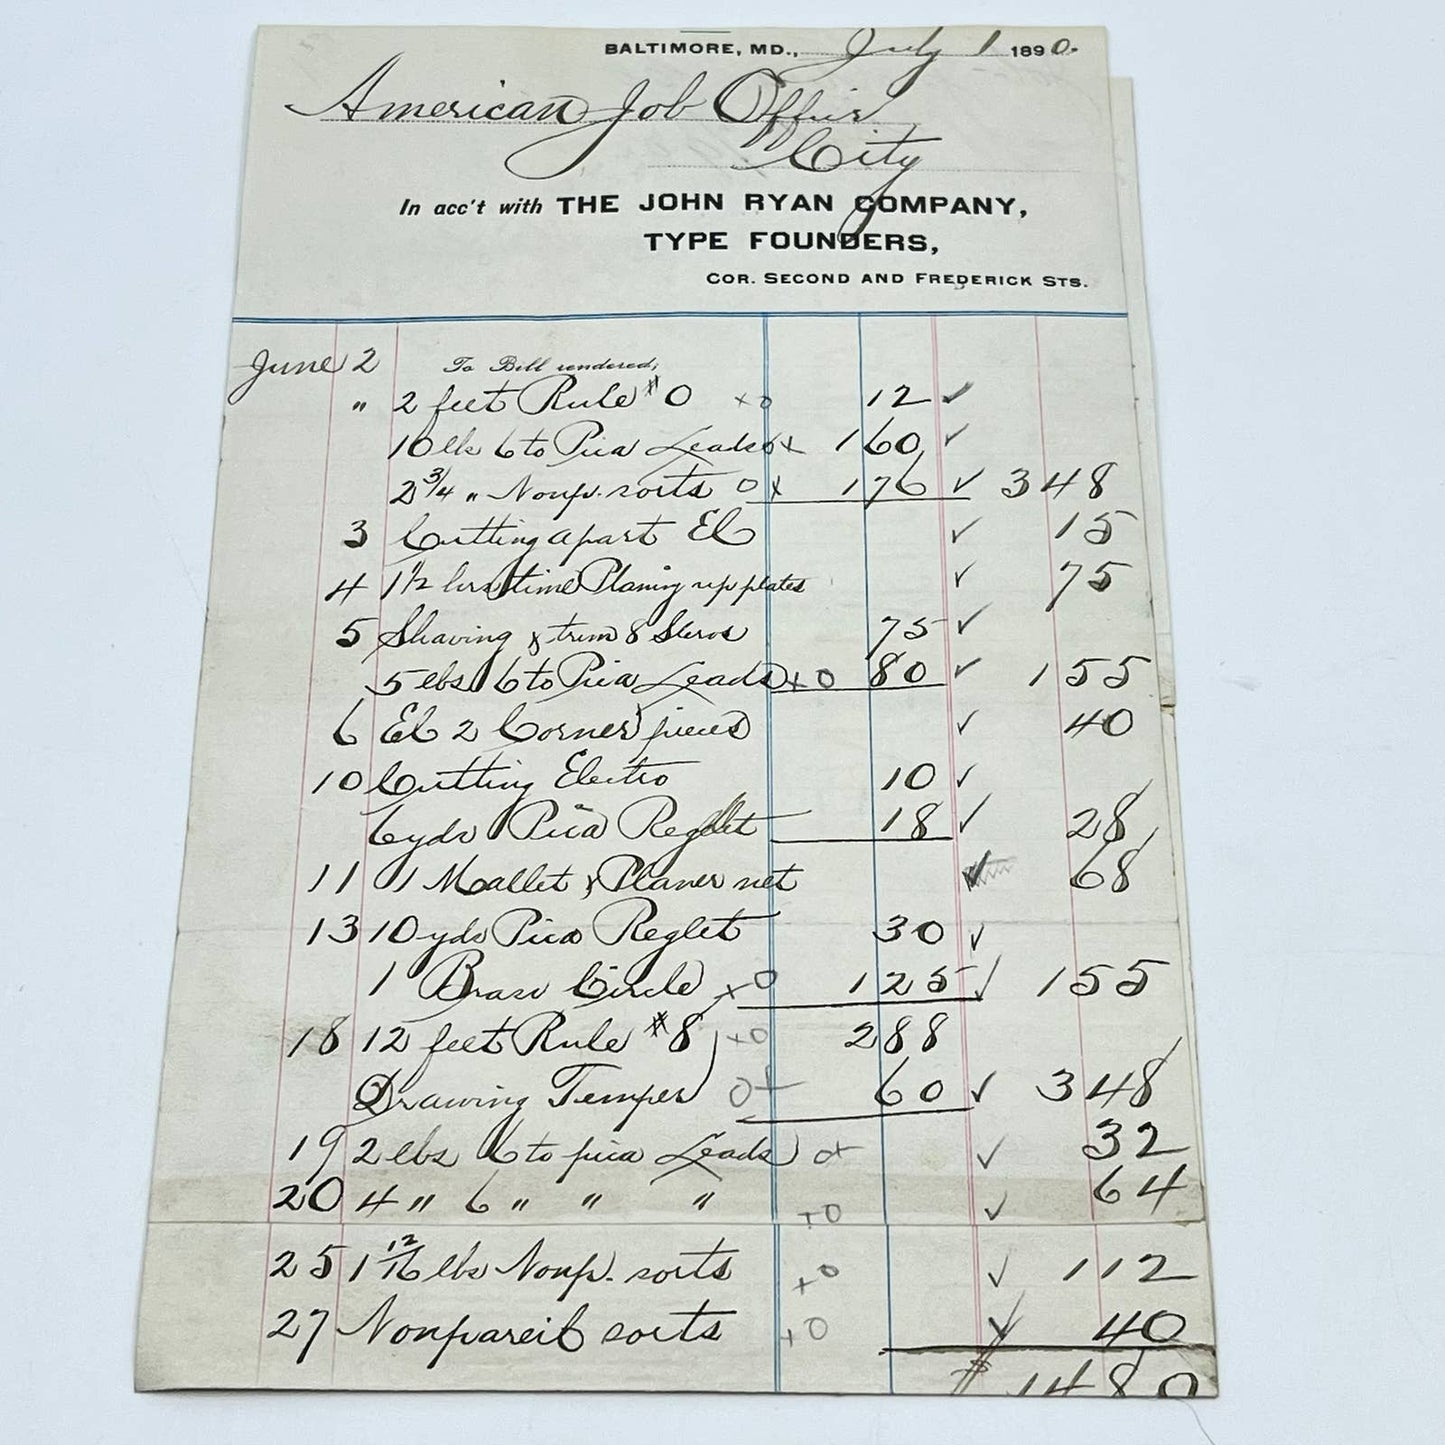 BALTIMORE, MD., July 1 1890.
American Job Office
City
In acc't with THE JOHN RYAN COMPANY,
TYPE FOUNDERS,
COR. SECOND AND FREDERICK STS.
June 2 To Bill rendered,
" 2 feet Rule #0 x o 12 ✓
10 lbs 6 to Pica Leads o x 160 ✓
2 3/4 " Nonp. sorts o x 176 ✓ 348
3 Cutting apart El ✓ 15
4 1 1/2 hrs time Planing up plates ✓ 75
5 Shaving & trim 8 Steros 75 ✓
5 lbs 6 to Pica Leads x o 80 ✓ 155
6 El 2 Corner pieces ✓ 40
10 Cutting Electro 10 ✓
6 yds Pica Reglet 18 ✓ 28
11 1 Mallet & Planer net ✓ 68
13 10 yds Pica Reglet 30 ✓
1 Brass Circle x o 125 ✓ 155
18 12 feet Rule #8 x o 288
Drawing Temper o x 60 ✓ 348
19 2 lbs 6 to pica Leads o x ✓ 32
20 4 " 6 " " " x o ✓ 64
25 1 12/16 lbs Nonp. sorts x o ✓ 112
27 Nonpareil sorts x o ✓ 40
$ 1480